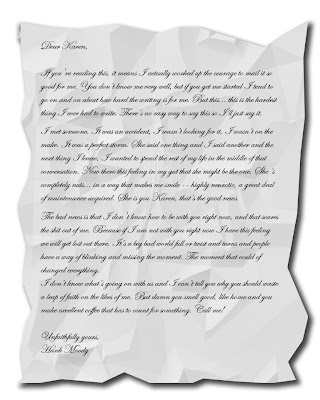 Dear Karen,
If you're reading this, it means I actually worked up the courage to mail it so
good for me. You don't know me very well, but if you get me started I tend to
go on and on about how hard the writing is for me. But this... this is the hardest
thing I ever had to write. There's no easy way to say this so I'll just say it.
I met someone. It was an accident, I wasn't looking for it, I wasn't on the
make. It was a perfect storm. She said one thing and I said another and the
next thing I knew, I wanted to spend the rest of my life in the middle of that
conversation. Now there this feeling in my gut that she might be the one. She's
completely nuts... in a way that makes me smile -- highly neurotic, a great deal
of maintenance required. She is you Karen, that's the good news.
The bad news is that I don't know how to be with you right now, and that scares
the shit out of me. Because if I am not with you right now I have this feeling
we will get lost out there. It's a big bad world full or twist and turns and people
have a way of blinking and missing the moment. The moment that could of
changed everything.
I don't know what's going on with us and I can't tell you why you should waste
a leap of faith on the likes of me. But damn you smell good, like home and you
make excellent coffee that has to count for something. Call me!
Unfaithfully yours,
Hank Moody